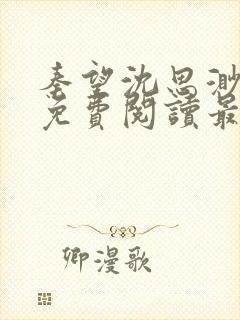 秦望沈思渺
免費閱讀最
卿漫歌